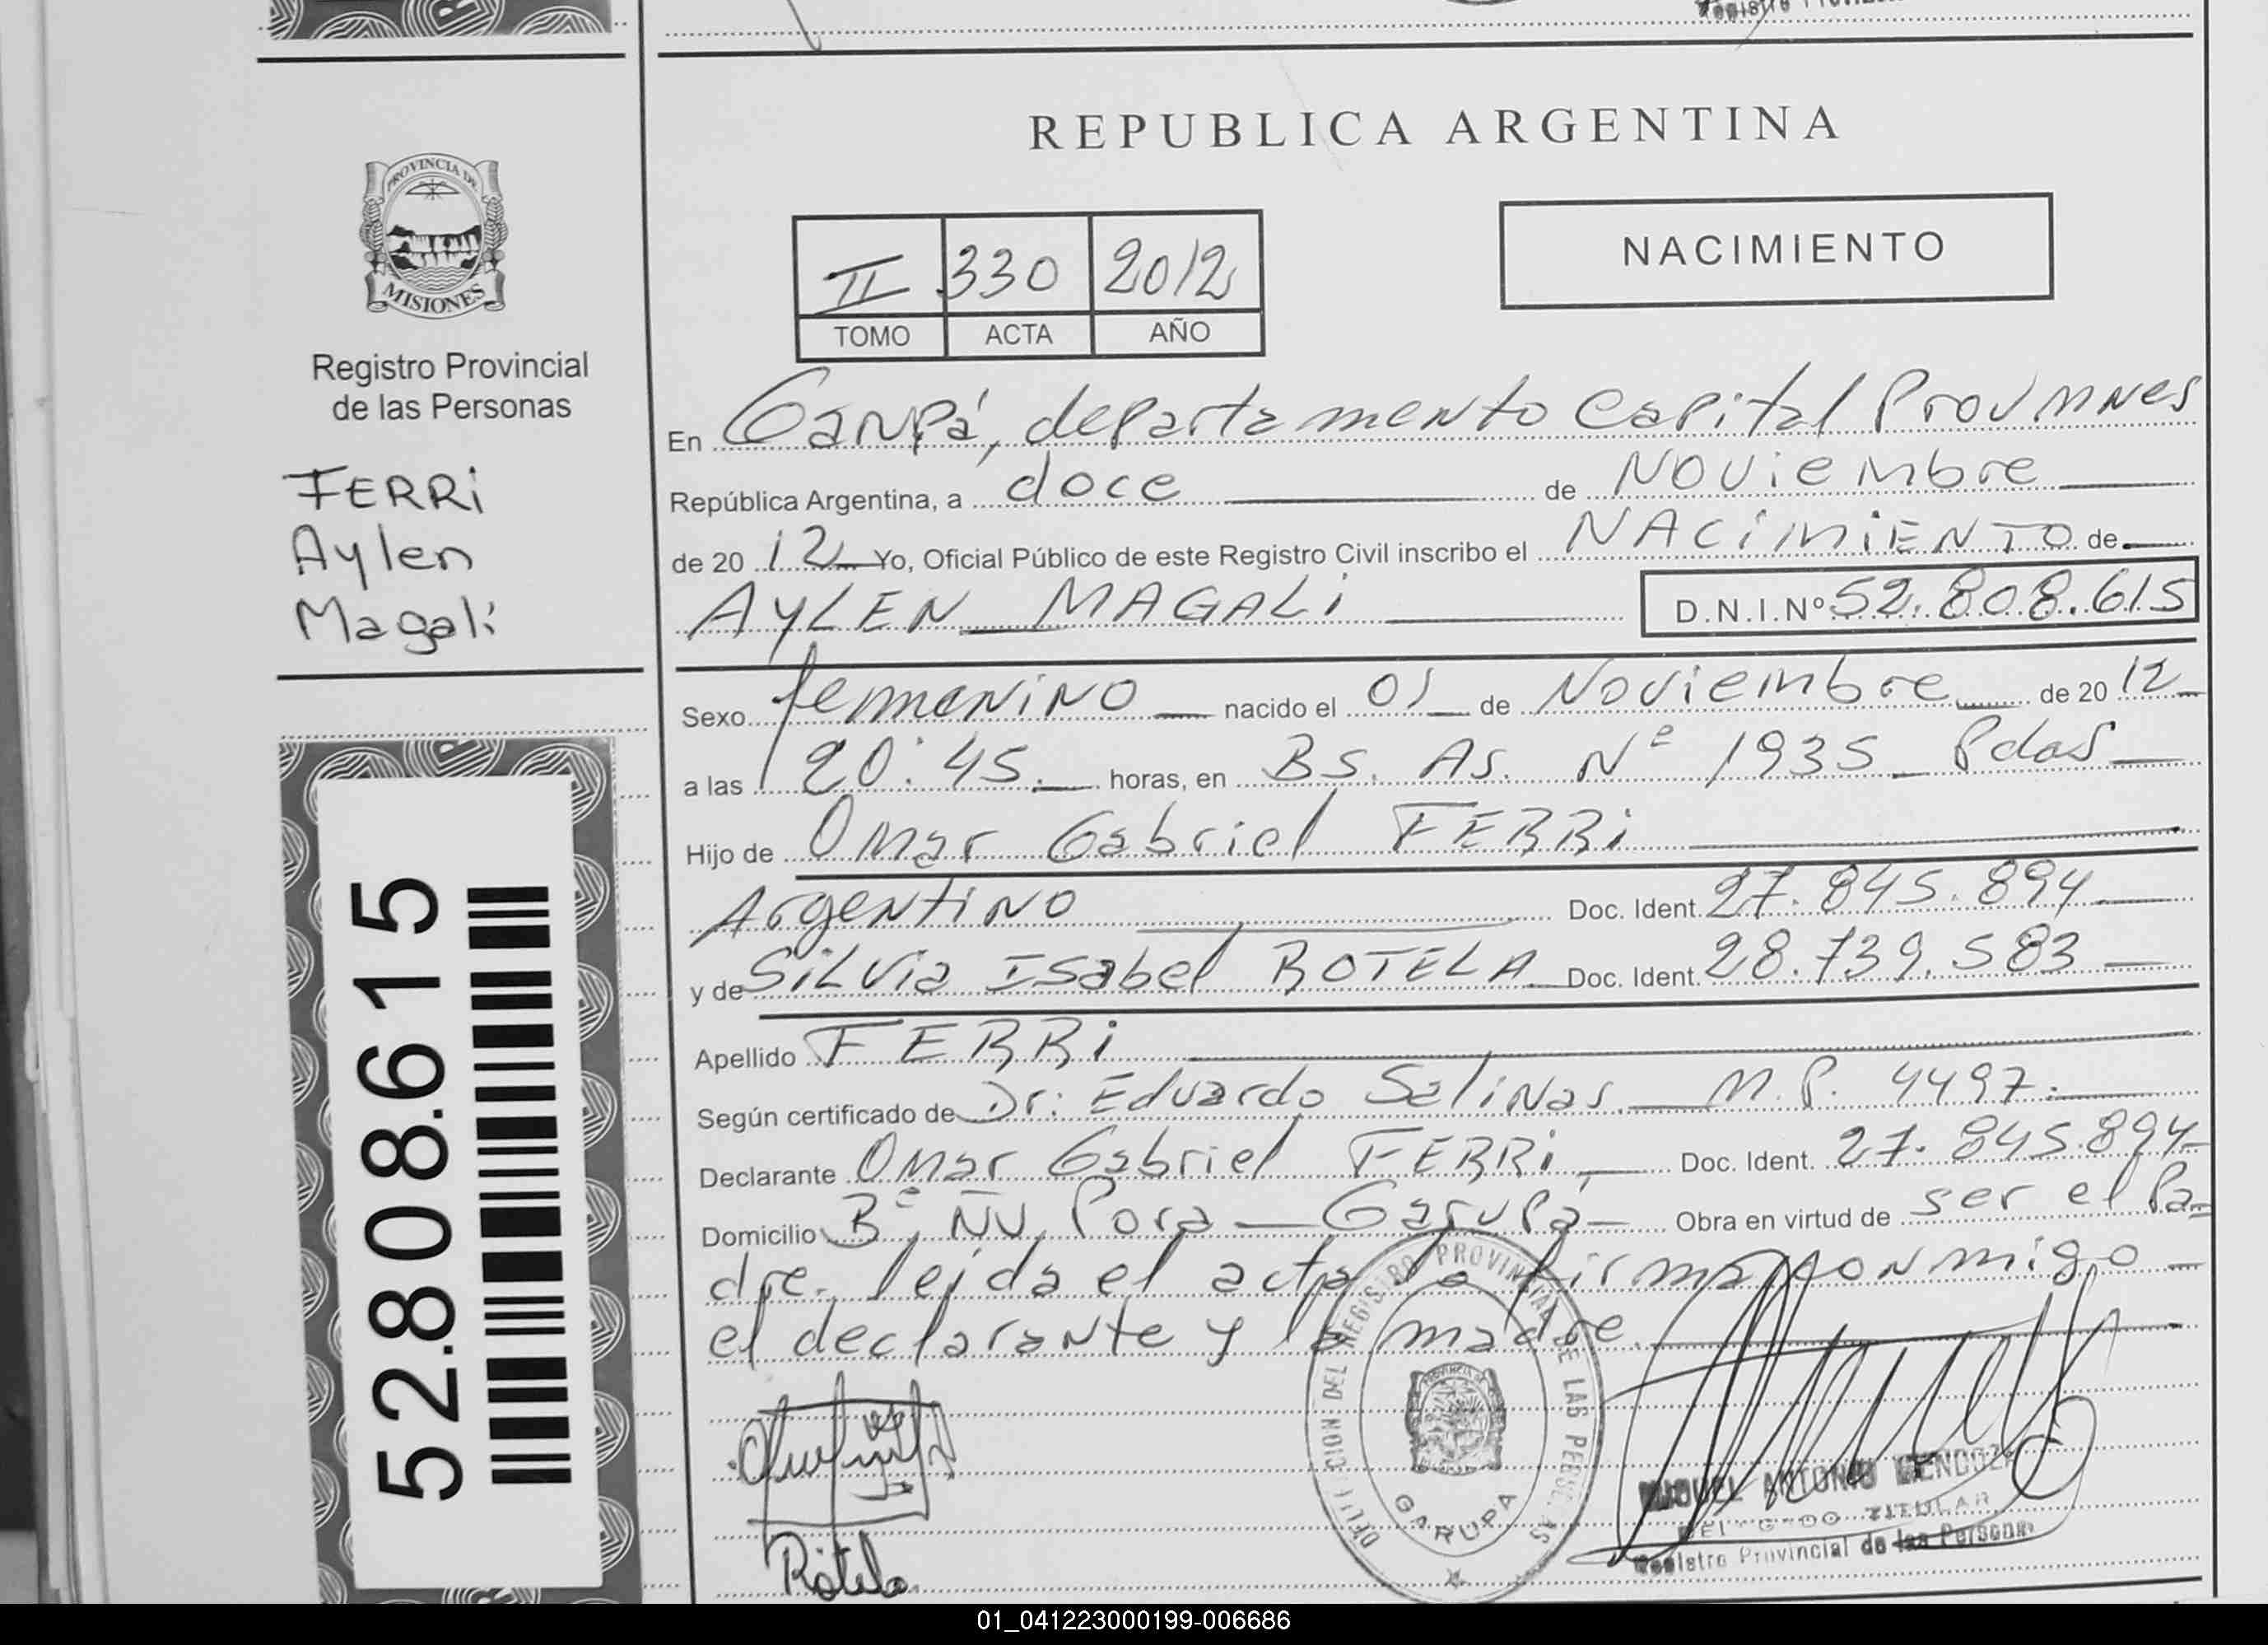 REPUBLICA ARGENTINA
PROVINCIA DE
MISIONES
Registro Provincial
de las Personas
FERRi
Aylen
Magali
II 330 2012
TOMO ACTA AÑO
NACIMIENTO
En Garupá, departamento Capital Prov Mnes
República Argentina, a doce de Noviembre
de 20 12 Yo, Oficial Público de este Registro Civil inscribo el NACiMiENTO de
AYLEN MAGALi D.N.I.Nº 52.808.615
Sexo femenino nacido el 01 de Noviembre de 20 12
a las 20:45. horas, en Bs. As. Nº 1935 Pdas
Hijo de Omar Gabriel FERRi
Argentino Doc. Ident. 27.845.894
y de SiLVia ISabel ROTELA Doc. Ident. 28.739.583
Apellido FERRi
Según certificado de Dr: Eduardo Salinas M.P. 4497.
Declarante Omar Gabriel FERRi Doc. Ident. 27.845.894
Domicilio Bº Ñu Pora - Garupá - Obra en virtud de ser el Pa-
dre. leida el acta la firma conmigo
el declarante y la madre.
52.808.615
Rotela
DELEGACION DEL REGISTRO PROVINCIAL DE LAS PERSONAS
GARUPA
MIGUEL ANTONIO MENDOZA
DELEGADO TITULAR
Registro Provincial de las Personas
01_041223000199-006686